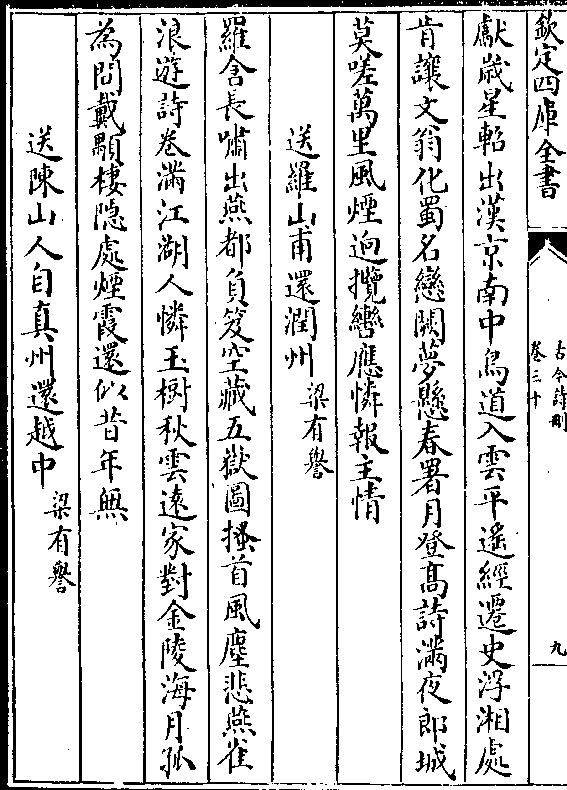 欽定四庫全書
古今詩刪
卷三十
九
獻歲星軺出漢京南中鳥道入雲平遙經遷史浮湘處
肯讓文翁化蜀名戀闕夢懸春署月登高詩滿夜郎城
莫嗟萬里風煙逈攬轡應憐報主情
送羅山甫還潤州 梁有譽
羅含長嘯出燕都負笈空藏五嶽圖搔首風塵悲燕雀
浪遊詩卷滿江湖人憐玉樹秋雲遠家對金陵海月孤
為問戴顒棲隠處煙霞還似昔年無
送陳山人自真州還越中 梁有譽